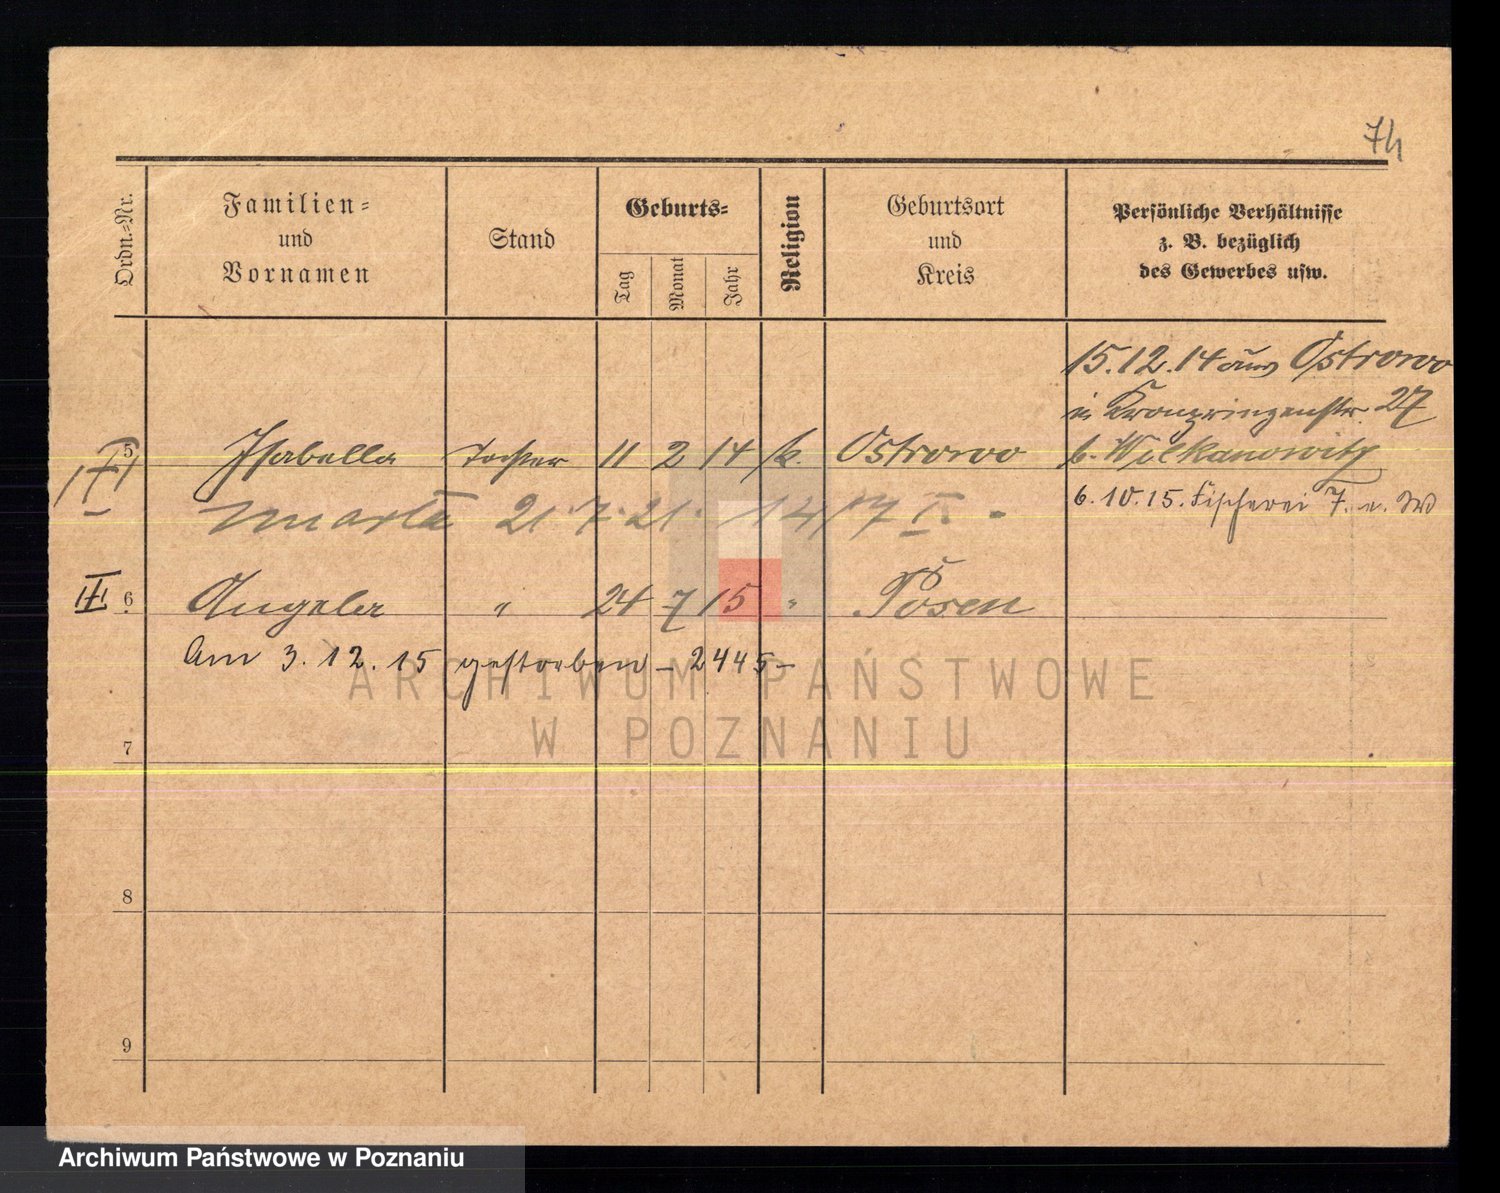 74
Ordn.-Nr.
Familien-
und
Vornamen
Stand
Geburts-
Tag
Monat
Jahr
Religion
Geburtsort
und
Kreis
Persönliche Verhältnisse
z. B. bezüglich
des Gewerbes usw.
15.12.14 aus Ostrowo
in Kronprinzenstr. 27
b. Wilkanowitz
5 Isabella Tochter 11 2 14 k. Ostrowo
6.10.15. Fischerei 7. b. W
Marta 21.7.21.
III 6 Angela " 24 7 15 " Posen
Am 3.12.15 gestorben - 2445-
7
8
9
ARCHIWUM PAŃSTWOWE
W POZNANIU
Archiwum Państwowe w Poznaniu